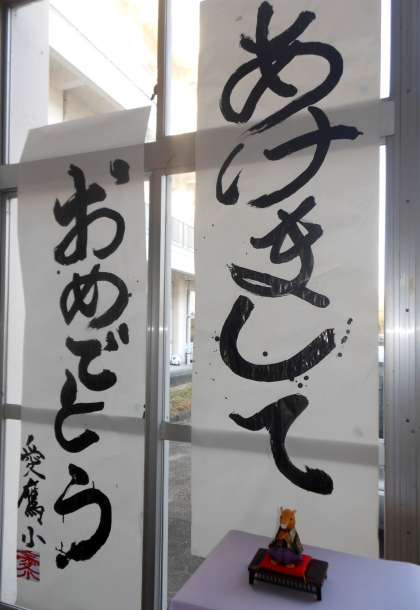 あけまして
おめでとう
愛鷹小